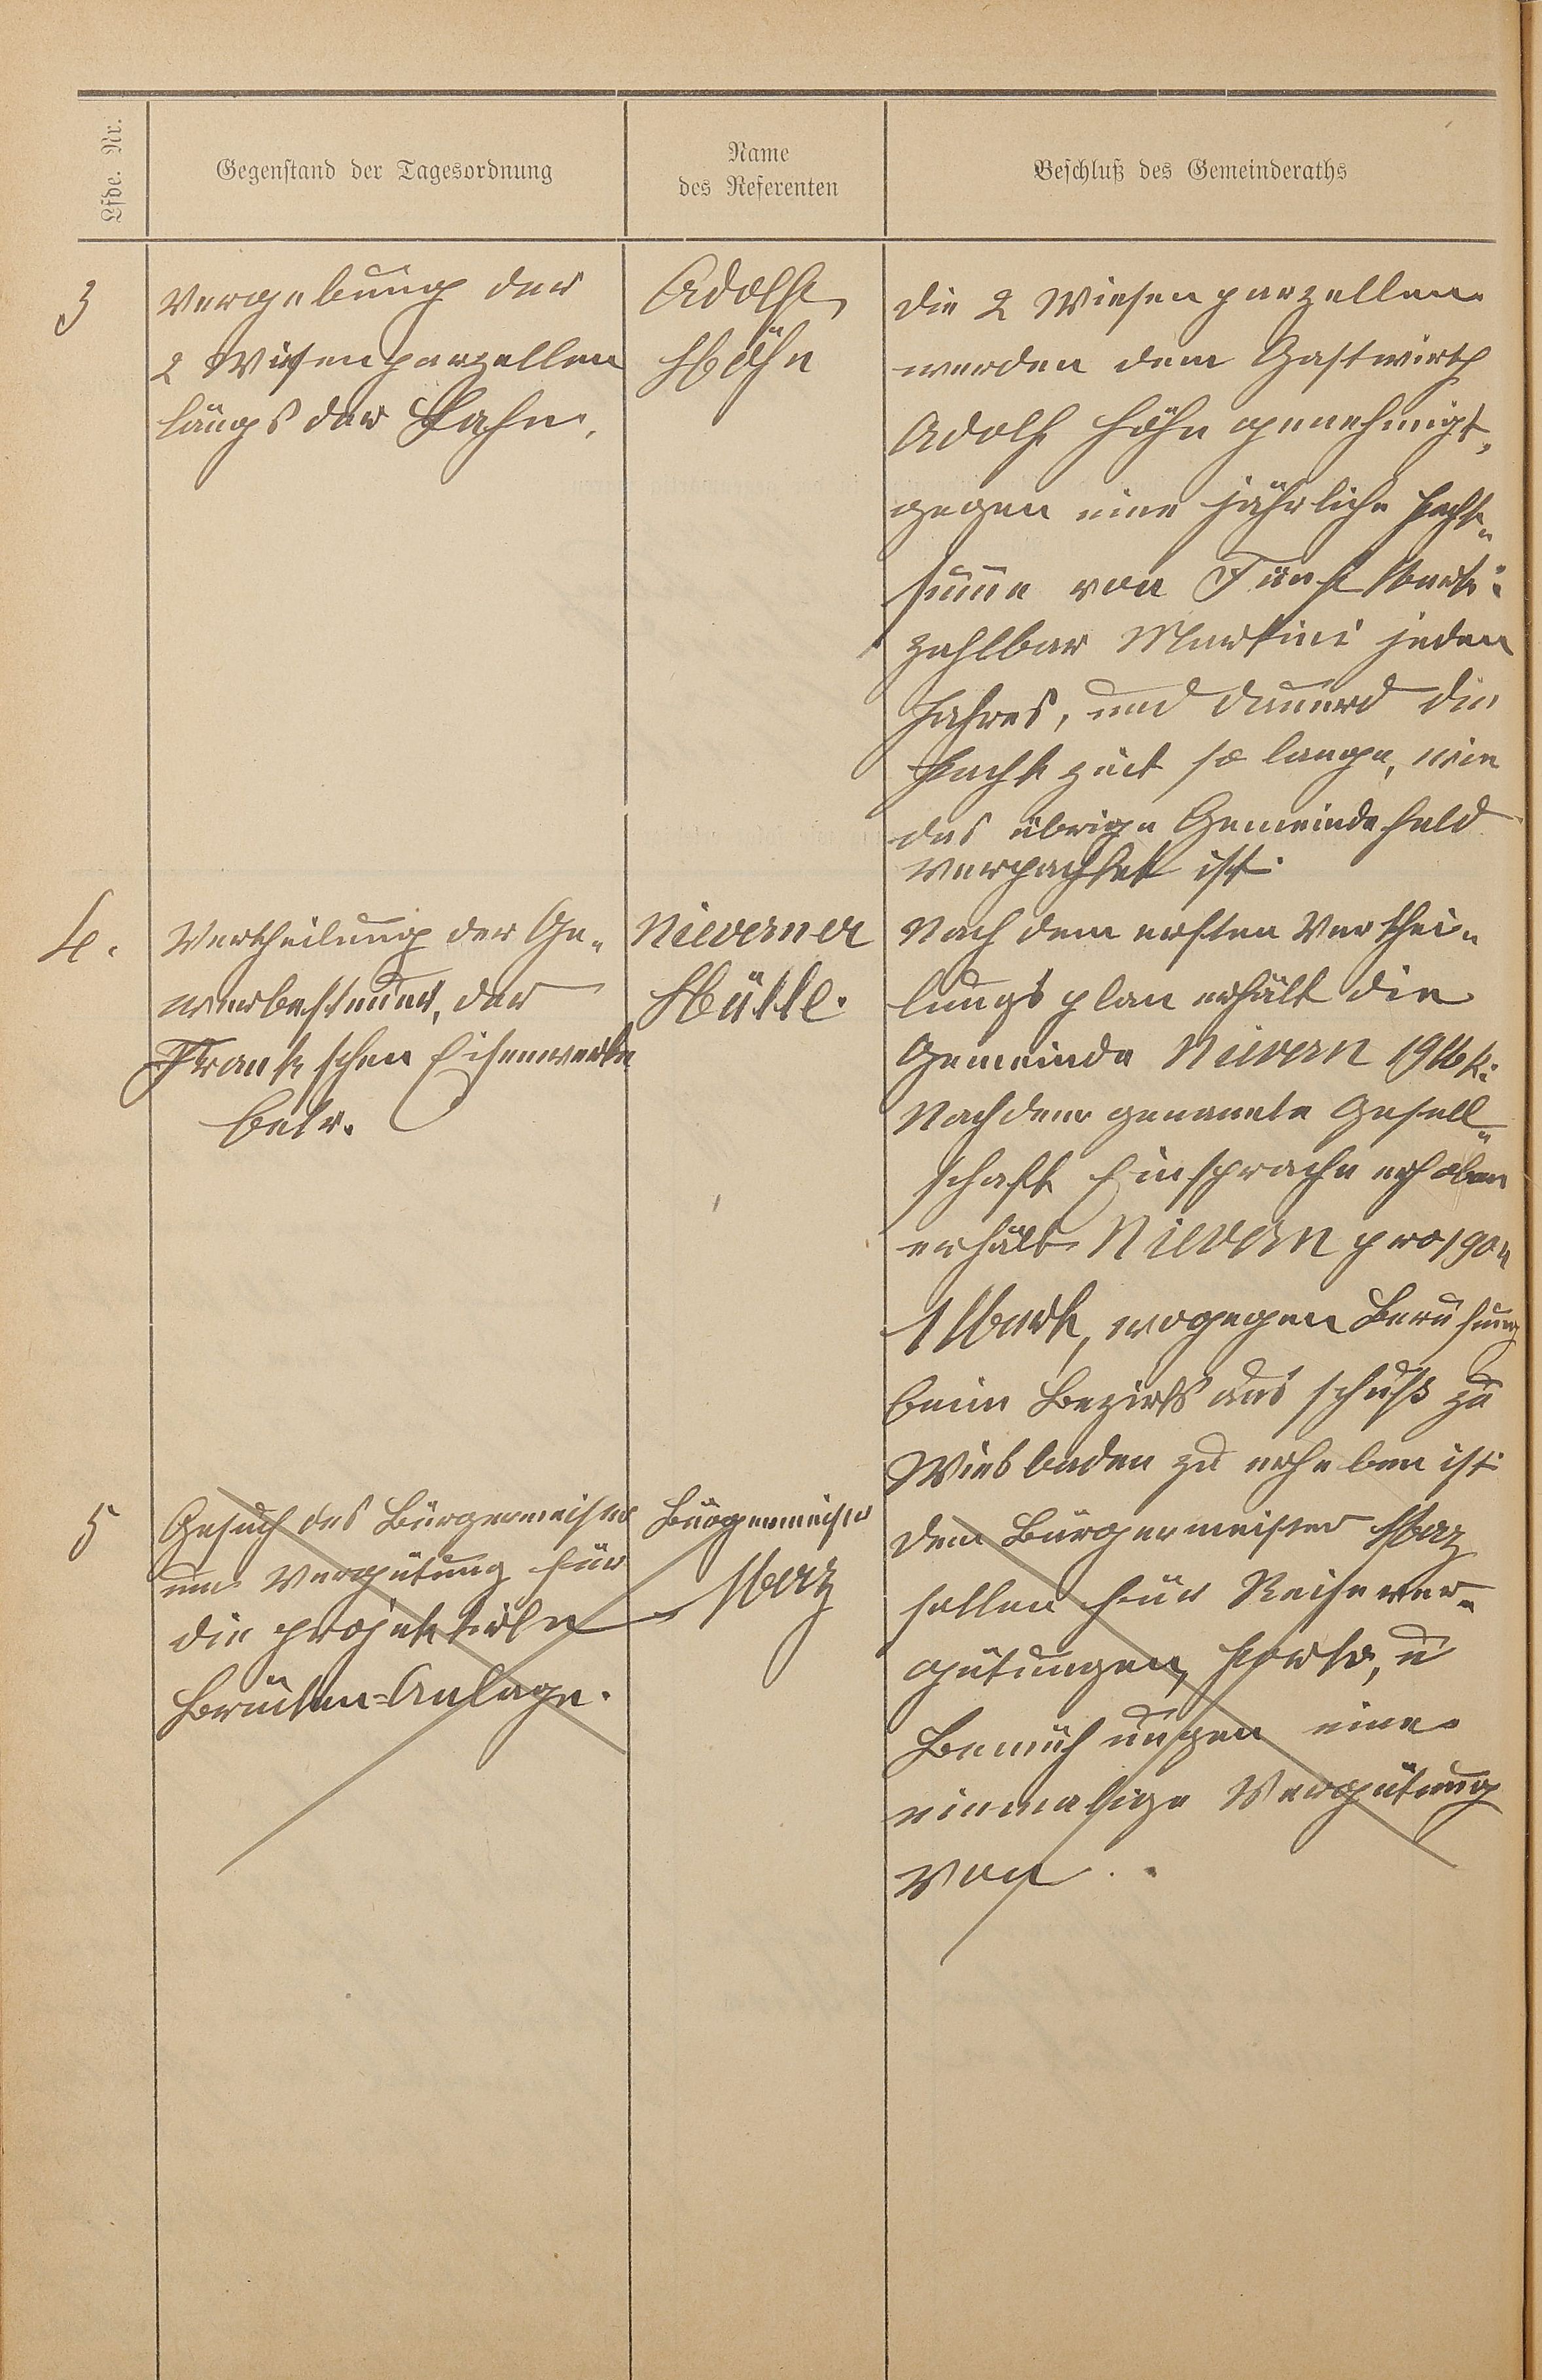 Lfde. Nr.
Gegenstand der Tagesordnung
Name
des Referenten
Beschluß des Gemeinderaths
3
Vergebung der
2 Wiesenparzellen
längs der Lahn.
Adolf
Höhn
Die 2 Wiesenparzellen
werden dem Gastwirth
Adolf Höhn genehmigt,
gegen eine jährliche Pacht-
summe von Fünf Mark:
zahlbar Martini jeden
Jahres, und dauerd die
Pachtzeit so lange, wie
das übrige Gemeindefeld
verpachtet ist.
4.
Vertheilung der Ge-
werbesteuer, der
Frankschen Eisenwerke
betr.
Nieverner
Hütte.
Nach dem ersten Verthei-
lungsplan erhält die
Gemeinde Nievern 19 Mk:
Nachdem genannte Gesell-
schaft Einsprache erhoben
erhält Nievern pro 1904
1 Mark, wogegen Berufung
beim Bezirksausschuß zu
Wiesbaden zu erheben ist.
5
Gesuch des Bürgermeister
um Vergütung für
die projektirte
Brücken-Anlage.
Bürgermeister
Marz
Dem Bürgermeister Marz
sollen für Reisever-
gütungen, Porto, u
Bemühungen eine
einmalige Vergütung
von . .